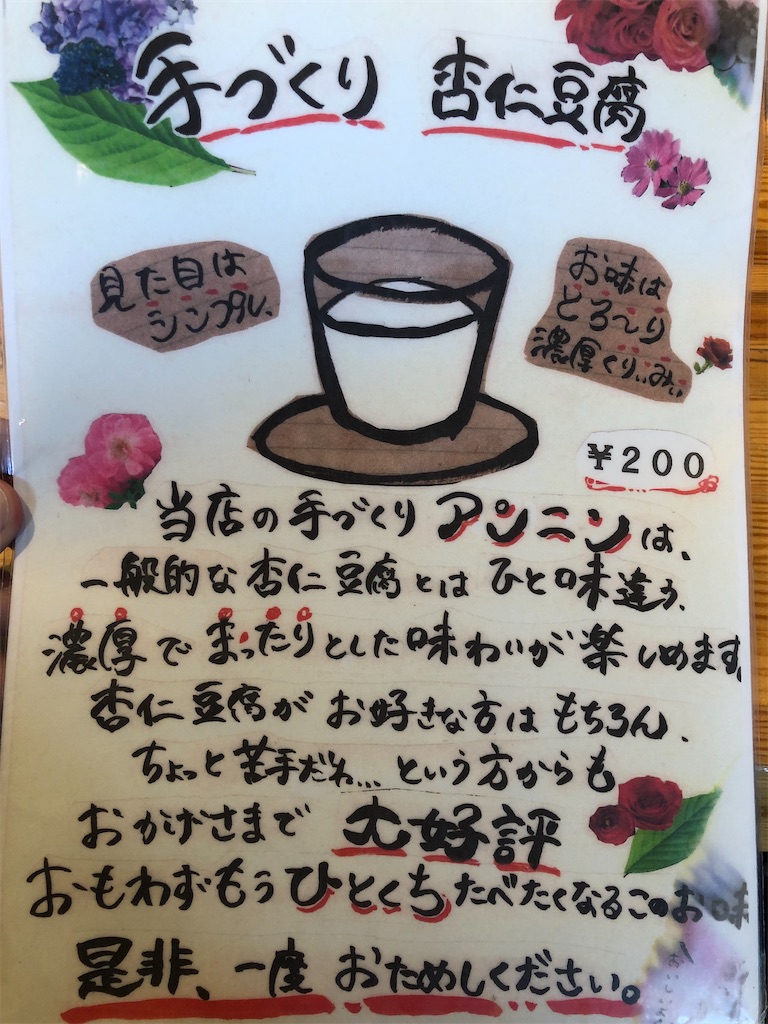 手づくり 杏仁豆腐
見た目は
シンプル、
お味は
とろ〜り
濃厚くりぃみぃ
¥200
当店の手づくりアンニンは、
一般的な杏仁豆腐とはひと味違う、
濃厚でまったりとした味わいが楽しめます。
杏仁豆腐がお好きな方はもちろん、
ちょっと苦手だわ…という方からも
おかげさまで 大好評
おもわずもうひとくちたべたくなるこのお味
是非、一度 おためしください。